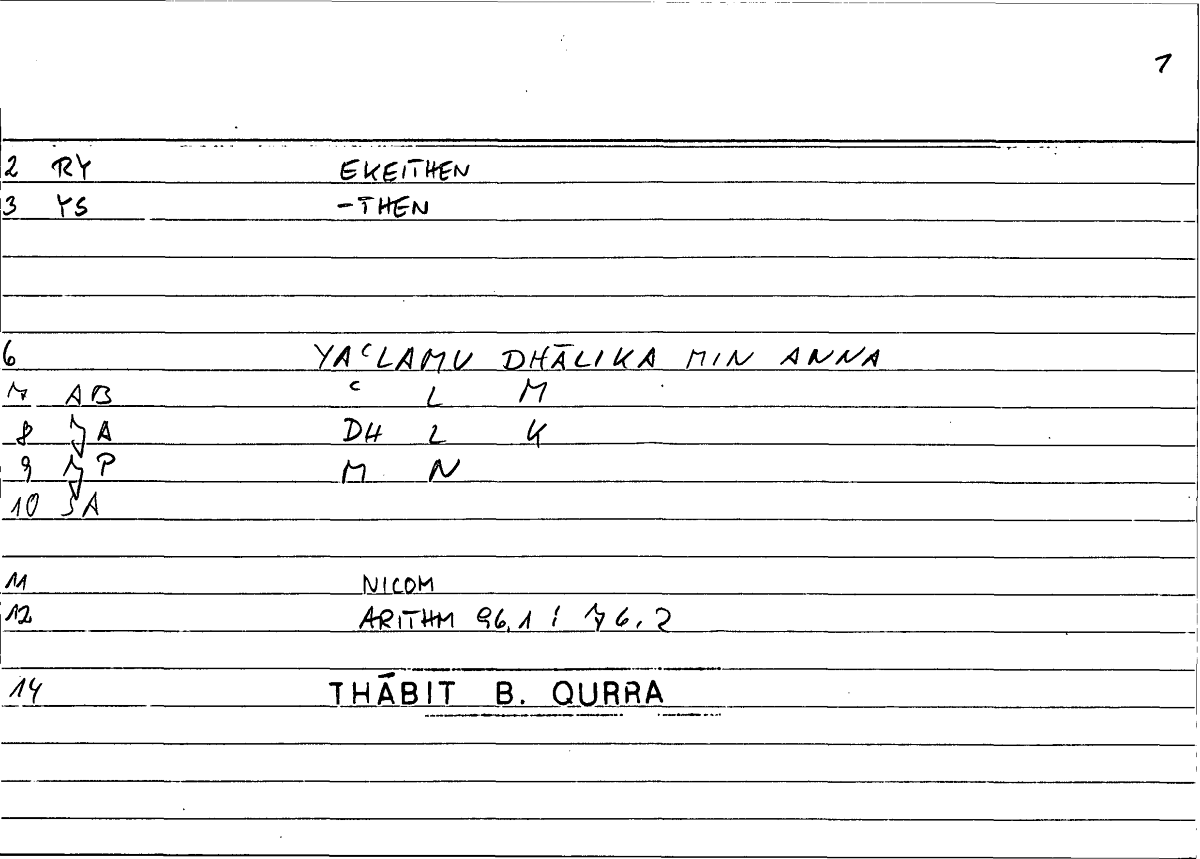 1
2 RY EKEITHEN
3 YS -THEN
6 YAᶜLAMU DHĀLIKA MIN ANNA
7 AB ᶜ L M
8 A DH L K
9 P M N
10 A
11 NICOM
12 ARITHM 96,1 : 76,2
14 THĀBIT B. QURRA